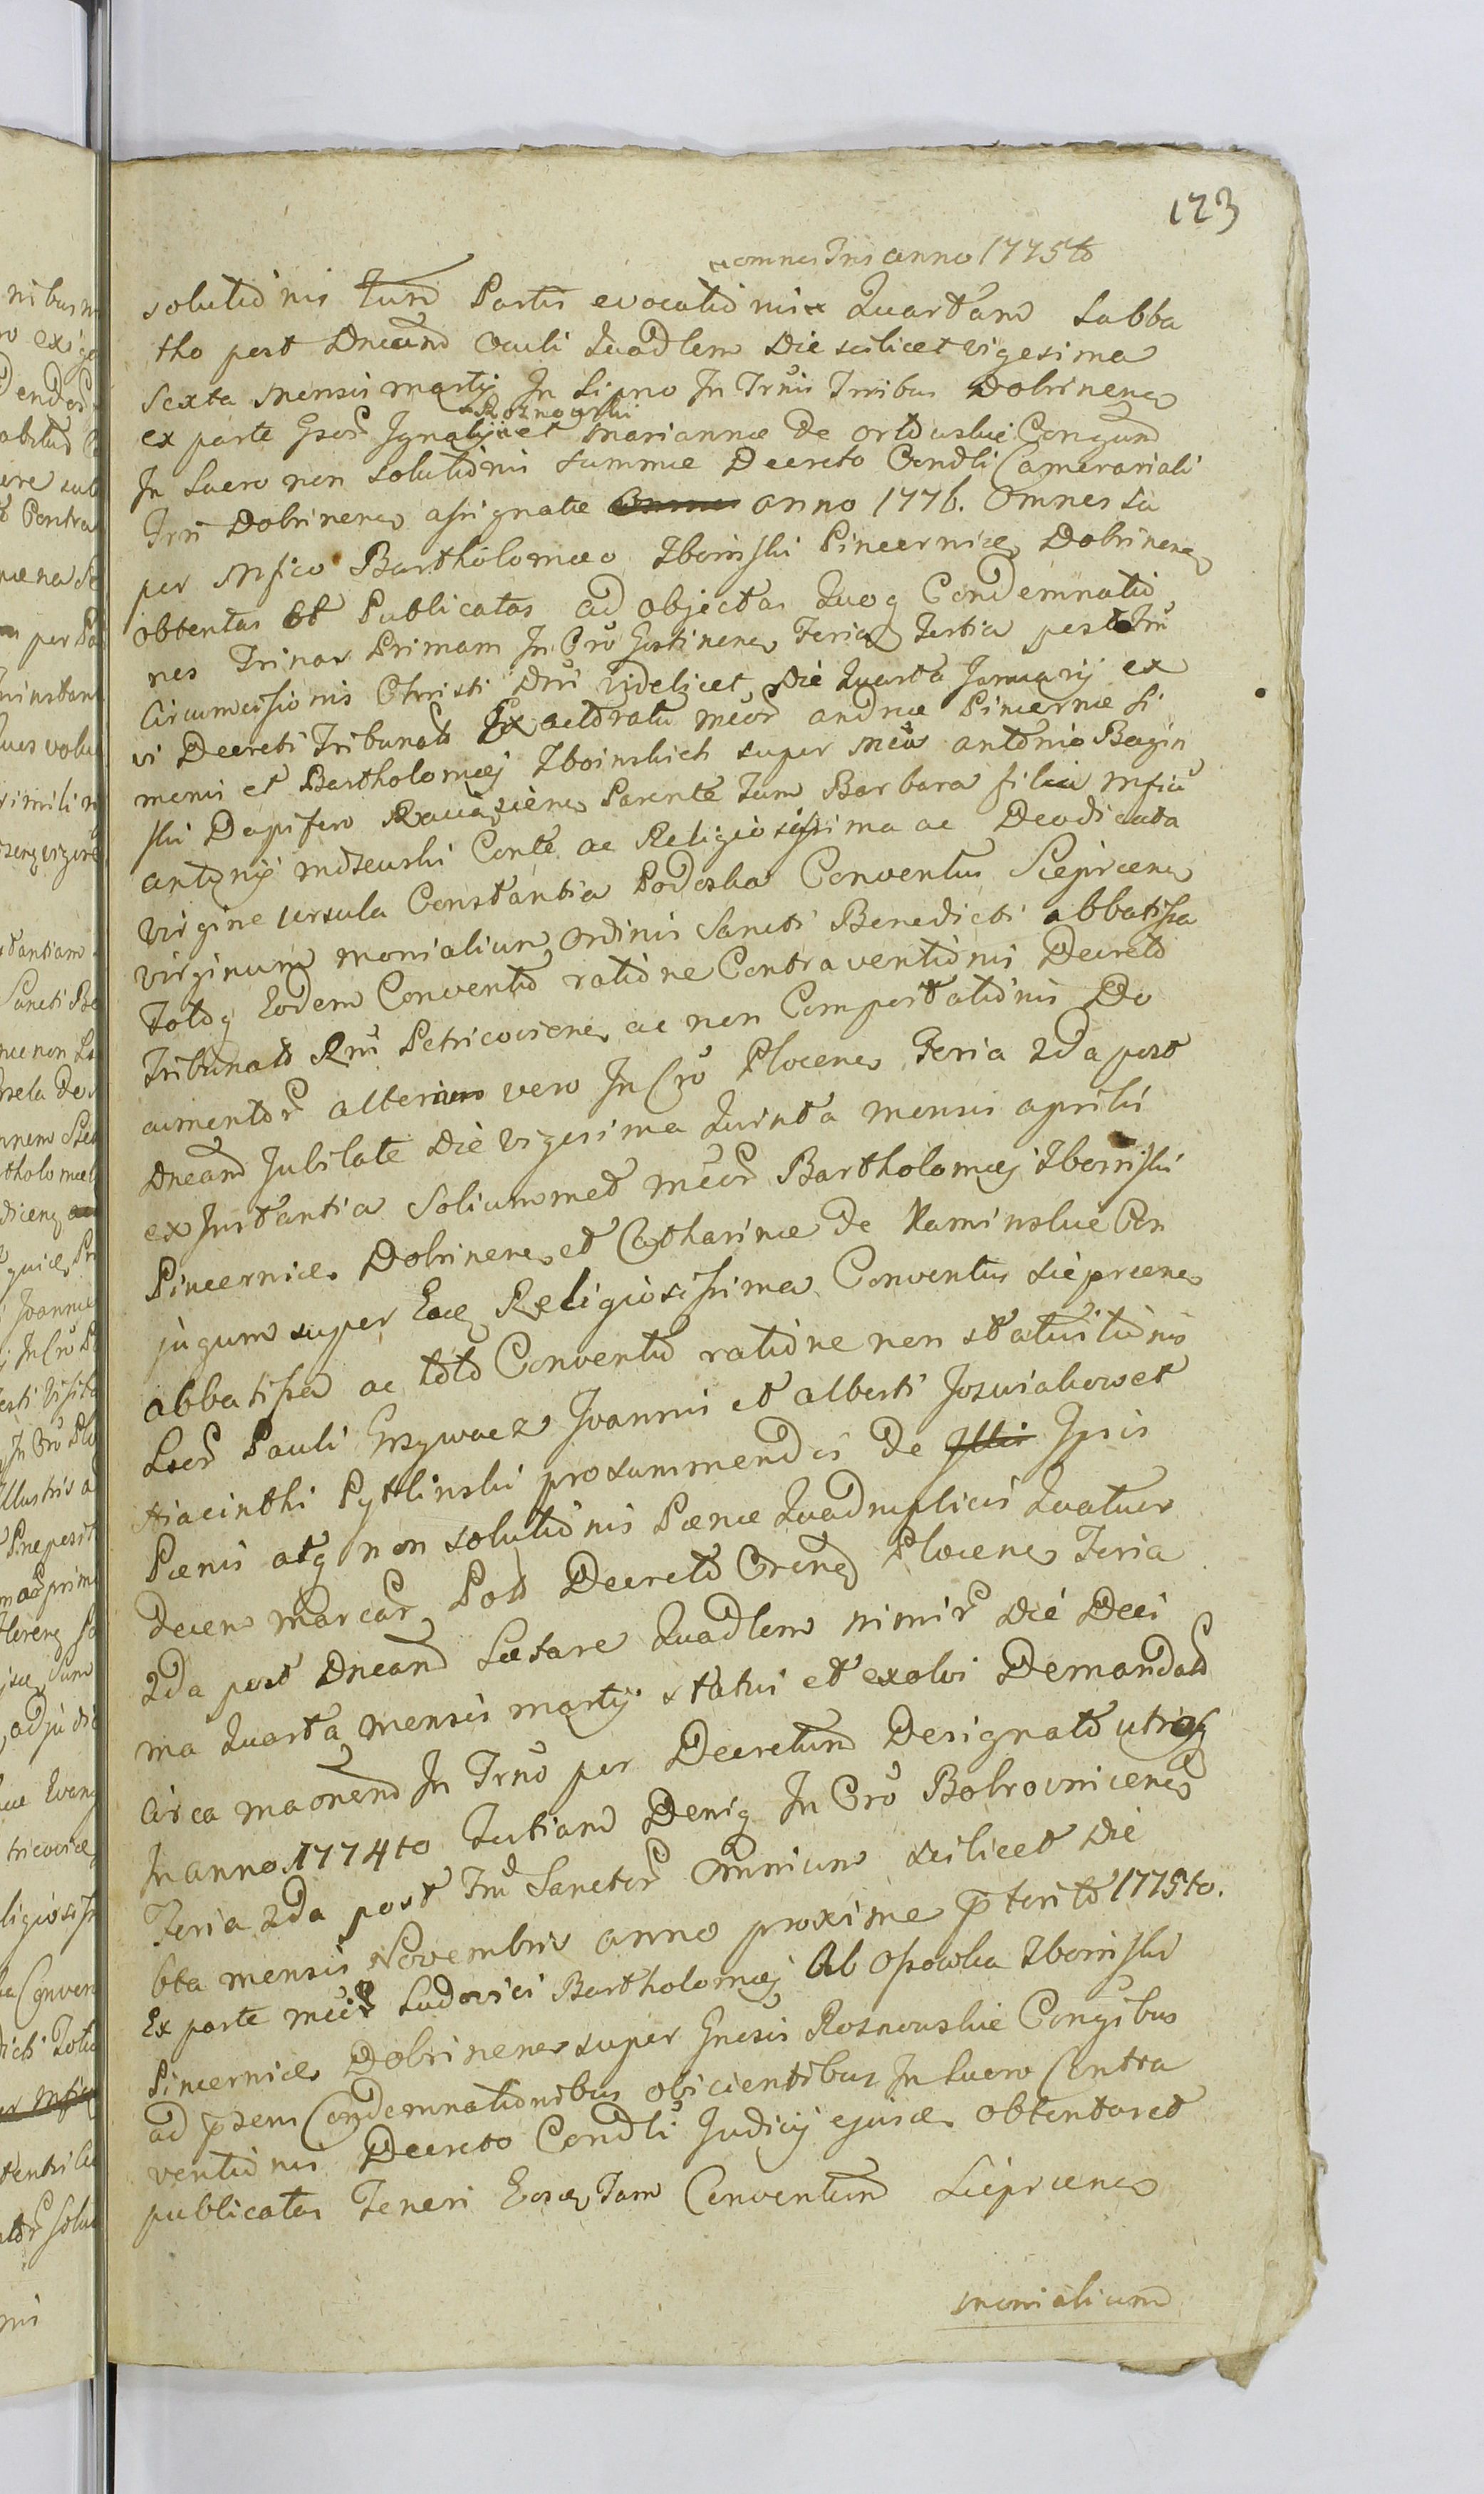 123
omnes Tres anno 1775to
solutionis tum Partis evocationis Quartam Sabba
tho post Dncam Oculi Quadlem Die scilicet vigesima
Sexta Mensis Martij In Lipno In Trnis Trribus Dobrinen
ex parte Gsor Ignatij Roznowski et Mariannæ de Conjugum
In Lucro non solutionis Summæ Decreto Condli Camerariali
Trri Dobrinen assignatæ anno 1776. Omnes su
per Mfico Bartholomæo Zboinski Pincernice Dobrinen
obtentas Et Publicatas ad objectas Quoq Condemnatio
nes Trinas Primam In Cro Gostinen Feria Tertia post Ftu
Circumcisionis Christi Dni videlicet Die Quarta Januarij ex
vi Decreti Tribunalis Ex actoratu Mcor Andreæ Pincernæ Si
menis et Bartholomæj Zboinskich super Mco Antonio Bogin
ski Dapifero Parente Tum Barbara filia Mfici
Antonij Conte ac Religiosissima ac Deodicata
Virgine Ursula Constantia Podoska Conventus Sieprcen
Virginum Monialium Ordinis Sancti Benedicti Abbatissa
Totoq Eodem Conventu ratione Contraventionis Decreto
Tribunali Rni Petricovien ac non Comportationis Do
cumentor alteram vero In Cro Plocen Feria 2da post
Dncam Jubilate Die Vigesima Quinta mensis Aprilis
ex Instantia Soliusmet Mcor Bartholomæj Zboinski
Pincernice Dobrinen et Catharinæ De Kaminskie Con
jugum super Eadę Religiosissima Conventus Sieprcen
Abbatissa ac toto Conventu ratione non statuitionis
Lbor Pauli Grzywacz Joannis et Alberti Jozwiakow et
Hiacinthi Pytlinski pro summendis de Illis Ipsis
Pænis atq non solutionis Pænæ Quadruplicis Quatuor
Decem Marcar Polo Decreto Cren Plocen Feria
2da post Dncam Lætare Quadlem nimir Die Deci
ma Quarta Mensis Martij statui et exolvi Demandat
Circa In Trno per Decretum Designato utrasq
In anno 1774to Tertiam Deniq In Cro Bobrovnicen
Feria 2da post Ftu Sanctor Omnium scilicet Die
6ta mensis Novembris anno proxime pterito 1775to.
Ex parte Mci Ludovici Bartholomæj Ab Ossowka Zboinski
Pincernice Dobrinen super Gnosis Roznowskie Conjgibus
ad psens Condemnationibus obicientibus In Lucro Contra
ventionis Decreto Condli Judicij ejusce obtentas et
publicatas Teneri Eosce Tam Conventum Sieprcen
Monialium